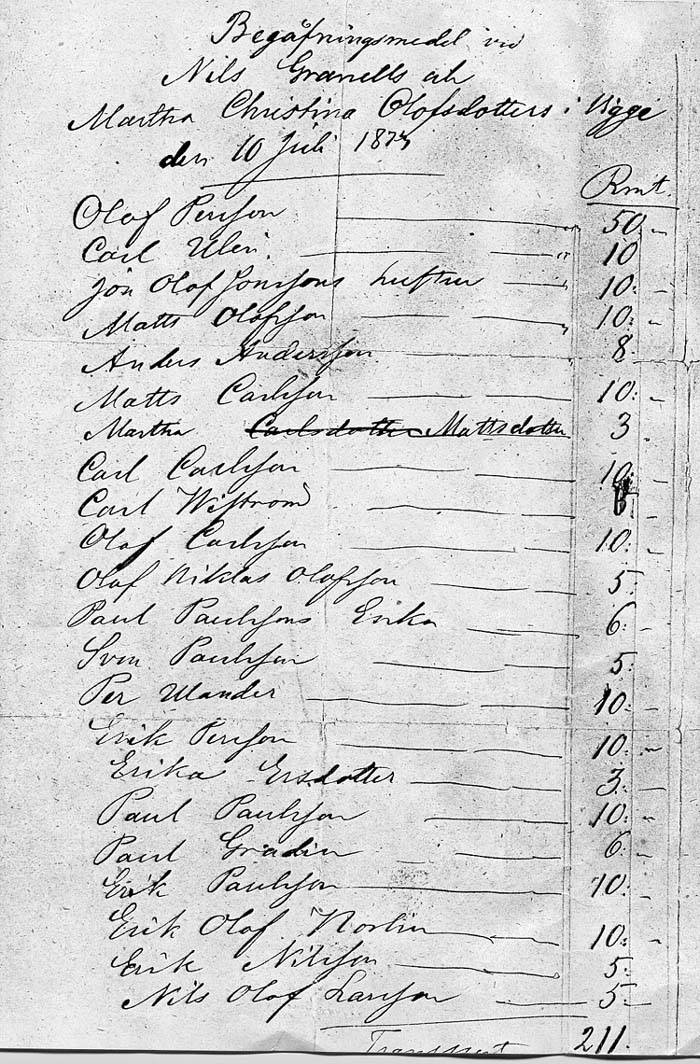 Begåfningsmedel vid
Nils Granells och
Martha Christina Olofsdotters i Vigge
den 10 Juli 1873
Rmt.
Olof Persson 50
Carl Ulen 10
Jön Olof Jonssons 10:
Matts Olofsson 10:
Anders Andersson 8
Matts Carlsson 10:
Martha Carlsdotter Mattsdotter 3
Carl Carlsson 10:
Carl Wiström
Olof Carlsson 10:
Olof Niklas Olofsson 5
Paul Paulsons Erika 6:
Sven Paulsson 5
Per Wander 10:
Erik Persson 10:
Erika Ersdotter 3:
Paul Paulsson 10:
Paul Gradin 6:
Erik Paulsson 10:
Erik Olof Norlin 10:
Erik Nilsson 5:
Nils Olof Larsson 5
Transport 211.